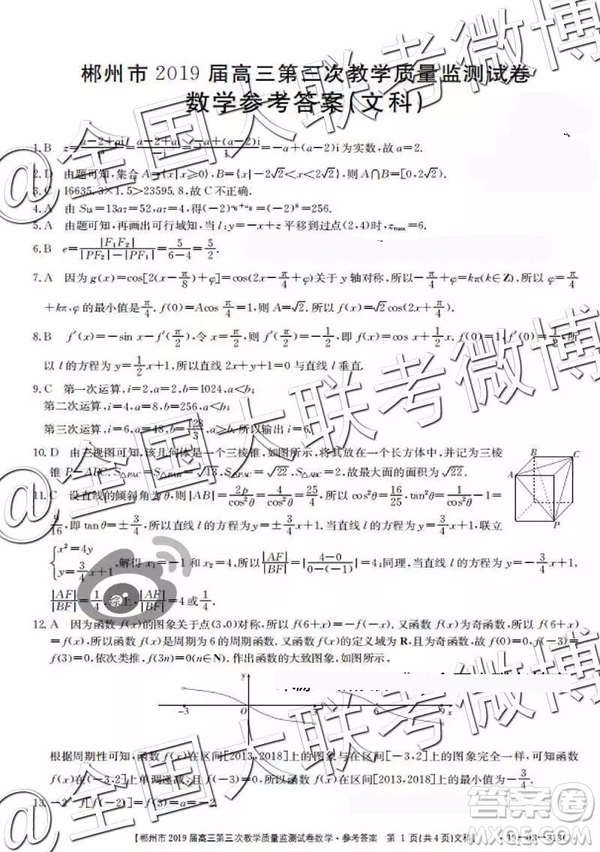 郴州市 2019 届高三第三次教学质量监测试卷
数学参考答案(文科)
1. B z= =-a+(a-2)i 为实数,故 a=2.
2. D 由题可知,集合 A={x|x≥0},B={x|-2√2<x<2√2},则 A∩B=[0,2√2).
3. C 16635.3×1.5>23595.8,故 C 不正确.
4. A 由 S₁₃=13a₇=52,a₇=4,得(-2)^{a₆+a₈}=(-2)⁸=256.
5. A 由题可知,再画出可行域,当 l:y=-x+z 平移到过点(2,4)时,z_max=6.
6. B e=|F₁F₂|/(|PF₂|-|PF₁|)=5/(6-4)=5/2.
7. A 因为 g(x)=cos[2(x-π/8)+φ]=cos(2x-π/4+φ)关于 y 轴对称,所以-π/4+φ=kπ(k∈Z),所以 φ=π/4
+kπ,φ 的最小值是π/4. f(0)=Acos π/4=1,则 A=√2,所以 f(x)=√2cos(2x+π/4).
8. B f′(x)=-sin x-f′(π/2),令 x=π/2,则 f′(π/2)=-1/2,f(0)=1,f′(0)=1/2,所
以 l 的方程为 y=1/2x+1,所以直线 2x+y+1=0 与直线 l 垂直.
9. C 第一次运算,i=2,a=2,b=1024,a<b;
第二次运算,i=4,a=8,b=256,a<b;
第三次运算,i=6,a=48,b=128/3,a>b,所以输出的 i=6.
10. D 由三视图可知,该几何体是一个三棱锥,如图所示,将其放在一个长方体中,并记为三棱
锥 P-ABC. S△PAC=S△PAB=√13,S△PBC=√22,S△ABC= ,故最大面的面积为√22.
11. C 设直线的倾斜角为 θ,则|AB|=2p/cos²θ=4/cos²θ=25/4,所以 cos²θ=16/25,tan²θ=
9/16,即 tanθ=±3/4,所以直线 l 的方程为 y=±3/4x+1. 当直线 l 的方程为 y=3/4x+1,联立
{x²=4y
y=3/4x+1,解得 x₁=-1 和 x₂=4,所以|AF|/|BF|=|(4-0)/(0-(-1))|=4;同理,当直线 l 的方程为 y=-3/4x+1,
|AF|/|BF|=1/4,所以|AF|/|BF|=4 或1/4.
12. A 因为函数 f(x)的图象关于点(3,0)对称,所以 f(6+x)=-f(-x). 又函数 f(x)为奇函数,所以 f(6+
x)=f(x),所以函数 f(x)是周期为 6 的周期函数. 又函数 f(x)的定义域为 R,且为奇函数,故 f(0)=0,f(-3)=
f(3)=0,依次类推,f(3n)=0(n∈N). 作出函数的大致图象,如图所示.
根据周期性可知,函数 f(x)在区间[2013,2018]上的图象与在区间[-3,2]上的图象完全一样,可知函
数 f(x)在[-3,2]上单调递减,所以函数 f(x)在区间[2013,2018]上的最小值为-3/4.
13. -2 f[f(-2)]=f(4)=-2.
【郴州市 2019 届高三第三次教学质量监测试卷数学·参考答案 第 1 页(共 4 页)文科】
@全国大联考微博